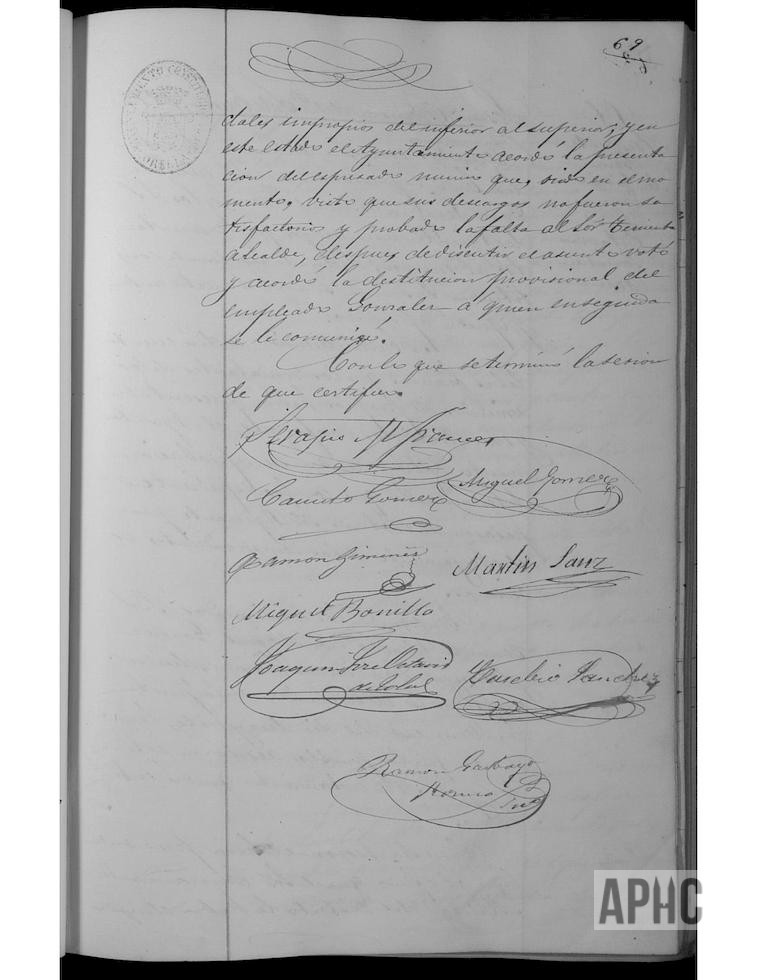 69
AYUNTAMIENTO CONSTITUCI
dales impropios del inferior al superior, y en
este estado el Ayuntamiento acordó la presenta
cion del espresado mismo que, oido en el mo
mento, visto que sus descargos no fueron sa
tisfactorios y probada la falta al Sór. Teniente
Alcalde, despues de discutir el asunto votó
y acordó la destitucion provisional del
empleado Gonzalez á quien enseguida
se le comunicó.
Con lo que se terminó la sesion
de que certifico.
Serapio M Frances
Canuto Gomez
Miguel Gomez
Ramon Gimenez
Martin Sanz
Miguel Bonilla
Joaquin
Eusebio Sanchez
Ramon Garbayo
APHC